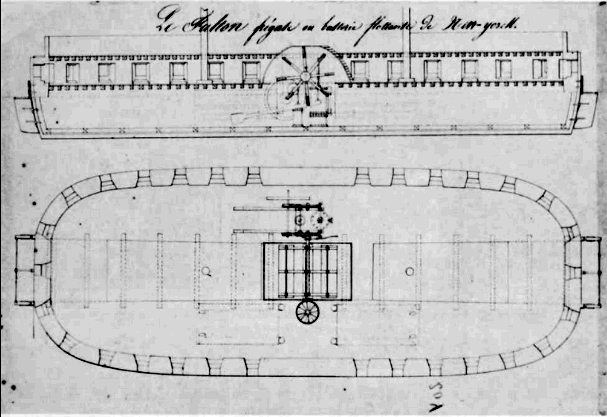 Le Fulton frégate ou batterie flottante de New-yorck.